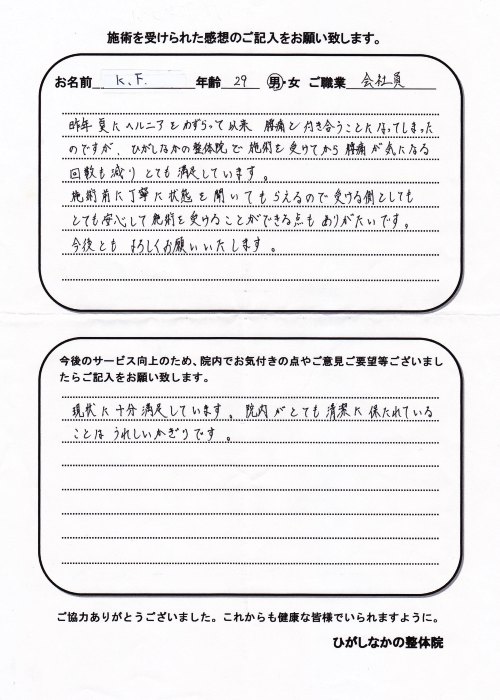 施術を受けられた感想のご記入をお願い致します。
お名前 K.F. 年齢 29 男・女 ご職業 会社員
昨年夏にヘルニアをわずらって以来 腰痛と付き合うことになってしまった
のですが、ひがしなかの整体院で施術を受けてから腰痛が気になる
回数も減りとても満足しています。
施術前に丁寧に状態を聞いてもらえるので受ける側としても
とても安心して施術を受けることができる点もありがたいです。
今後とも よろしくお願いいたします。
今後のサービス向上のため、院内でお気付きの点やご意見ご要望等ございまし
たらご記入をお願い致します。
現状に十分満足しています。院内がとても清潔に保たれている
ことはうれしいかぎりです。
ご協力ありがとうございました。これからも健康な皆様でいられますように。
ひがしなかの整体院